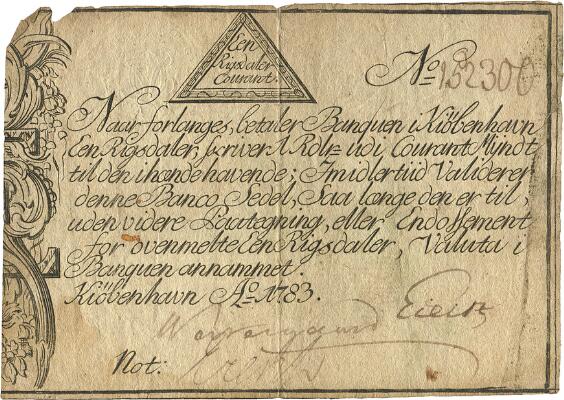 Een
Rigsdaler
Courant.
No. 152300
Naar forlanges, betaler Banquen i Kiöbenhavn
Een Rigsdaler, skriver 1 Rdlr. udi Courant Myndt
til den ihændehavende; Imidlertiid Validerer
denne Banco Sedel, Saa længe den er til,
uden videre Paategning, eller Endossement
for ovenmelte Een Rigsdaler, Valuta i
Banquen annammet.
Kiöbenhavn Ao. 1783.
Not: